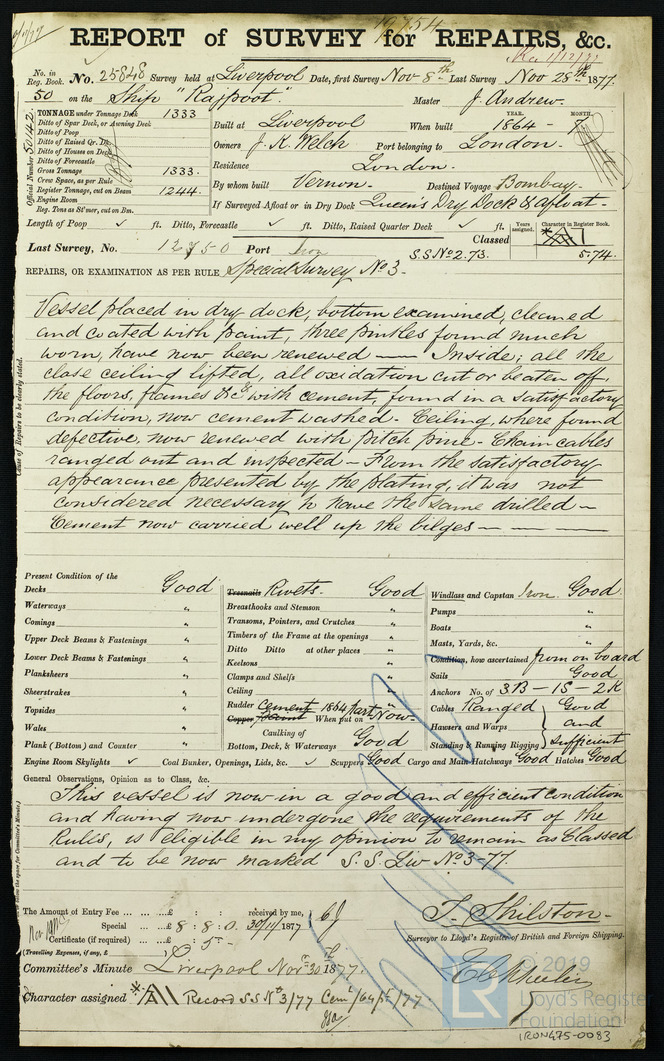 19754
REPORT of SURVEY for REPAIRS, &c.
No. in Reg. Book. No. 25848 Survey held at Liverpool Date, first Survey Nov 8th Last Survey Nov 28th 1877.
50 on the Ship "Rajpoot" Master J. Andrew.
TONNAGE under Tonnage Deck 1333
Ditto of Spar Deck, or Awning Deck
Ditto of Poop
Ditto of Raised Qr. Dk.
Ditto of Houses on Deck
Ditto of Forecastle
Gross Tonnage 1333.
Crew Space, as per Rule
Register Tonnage, cut on Beam 1244.
Engine Room
Reg. Tons as St'mer, cut on Bm.
Official Number 50142.
Built at Liverpool When built YEAR. 1864 - MONTH. 7
Owners J. K. Welch Port belonging to London.
Residence London.
By whom built Vernon. Destined Voyage Bombay.
If Surveyed Afloat or in Dry Dock Queen's Dry Dock & afloat.
Length of Poop ft. Ditto, Forecastle ft. Ditto, Raised Quarter Deck ft.
Years assigned. Character in Register Book.
Classed A 1
5.74.
Last Survey, No. 12750 Port Iron S.S. No 2.73.
REPAIRS, OR EXAMINATION AS PER RULE Special Survey No 3.
Vessel placed in dry dock, bottom examined, cleaned
and coated with paint, three pintles found much
worn, have now been renewed — Inside; all the
close ceiling lifted, all oxidation cut or beaten off,
the floors, frames &c with cement, found in a satisfactory
condition, now cement washed. Ceiling, where found
defective, now renewed with pitch pine - Chain cables
ranged out and inspected - From the satisfactory
appearance presented by the plating, it was not
considered necessary to have the same drilled -
Cement now carried well up the bilges - - - -
Cause of Repairs to be clearly stated.
Present Condition of the
Decks Good
Waterways "
Comings "
Upper Deck Beams & Fastenings "
Lower Deck Beams & Fastenings "
Planksheers "
Sheerstrakes "
Topsides "
Wales "
Plank (Bottom) and Counter "
Treenails Rivets. Good
Breasthooks and Stemson "
Transoms, Pointers, and Crutches "
Timbers of the Frame at the openings "
Ditto Ditto at other places "
Keelsons "
Clamps and Shelfs "
Ceiling "
Rudder "
Copper Cement 1864 part Now.
When put on
Caulking of
Bottom, Deck, & Waterways Good
Windlass and Capstan Iron. Good
Pumps "
Boats "
Masts, Yards, &c. "
Condition, how ascertained from on board
Sails Good
Anchors No. of 3B - 1S - 2K
Cables Ranged Good
Hawsers and Warps and
Standing & Running Rigging sufficient
Engine Room Skylights Coal Bunker, Openings, Lids, &c. Scuppers Good Cargo and Main Hatchways Good Hatches Good
General Observations, Opinion as to Class, &c.
This vessel is now in a good and efficient condition
and having now undergone the requirements of the
Rules, is eligible in my opinion to remain as Classed
and to be now marked S.S. Liv No. 3-77.
The Amount of Entry Fee £ : : received by me,
Special £ 8 : 8 : 0. 30/11/1877
Certificate (if required) : 5 -
(Travelling Expenses, if any, £
T. Shilston.
Surveyor to Lloyd's Register of British and Foreign Shipping.
Committee's Minute Liverpool Nov. 30 1877.
Character assigned A1 Record S S No 3/77 Cem
© 2019
LR Lloyd's Register Foundation
IRON475-0083